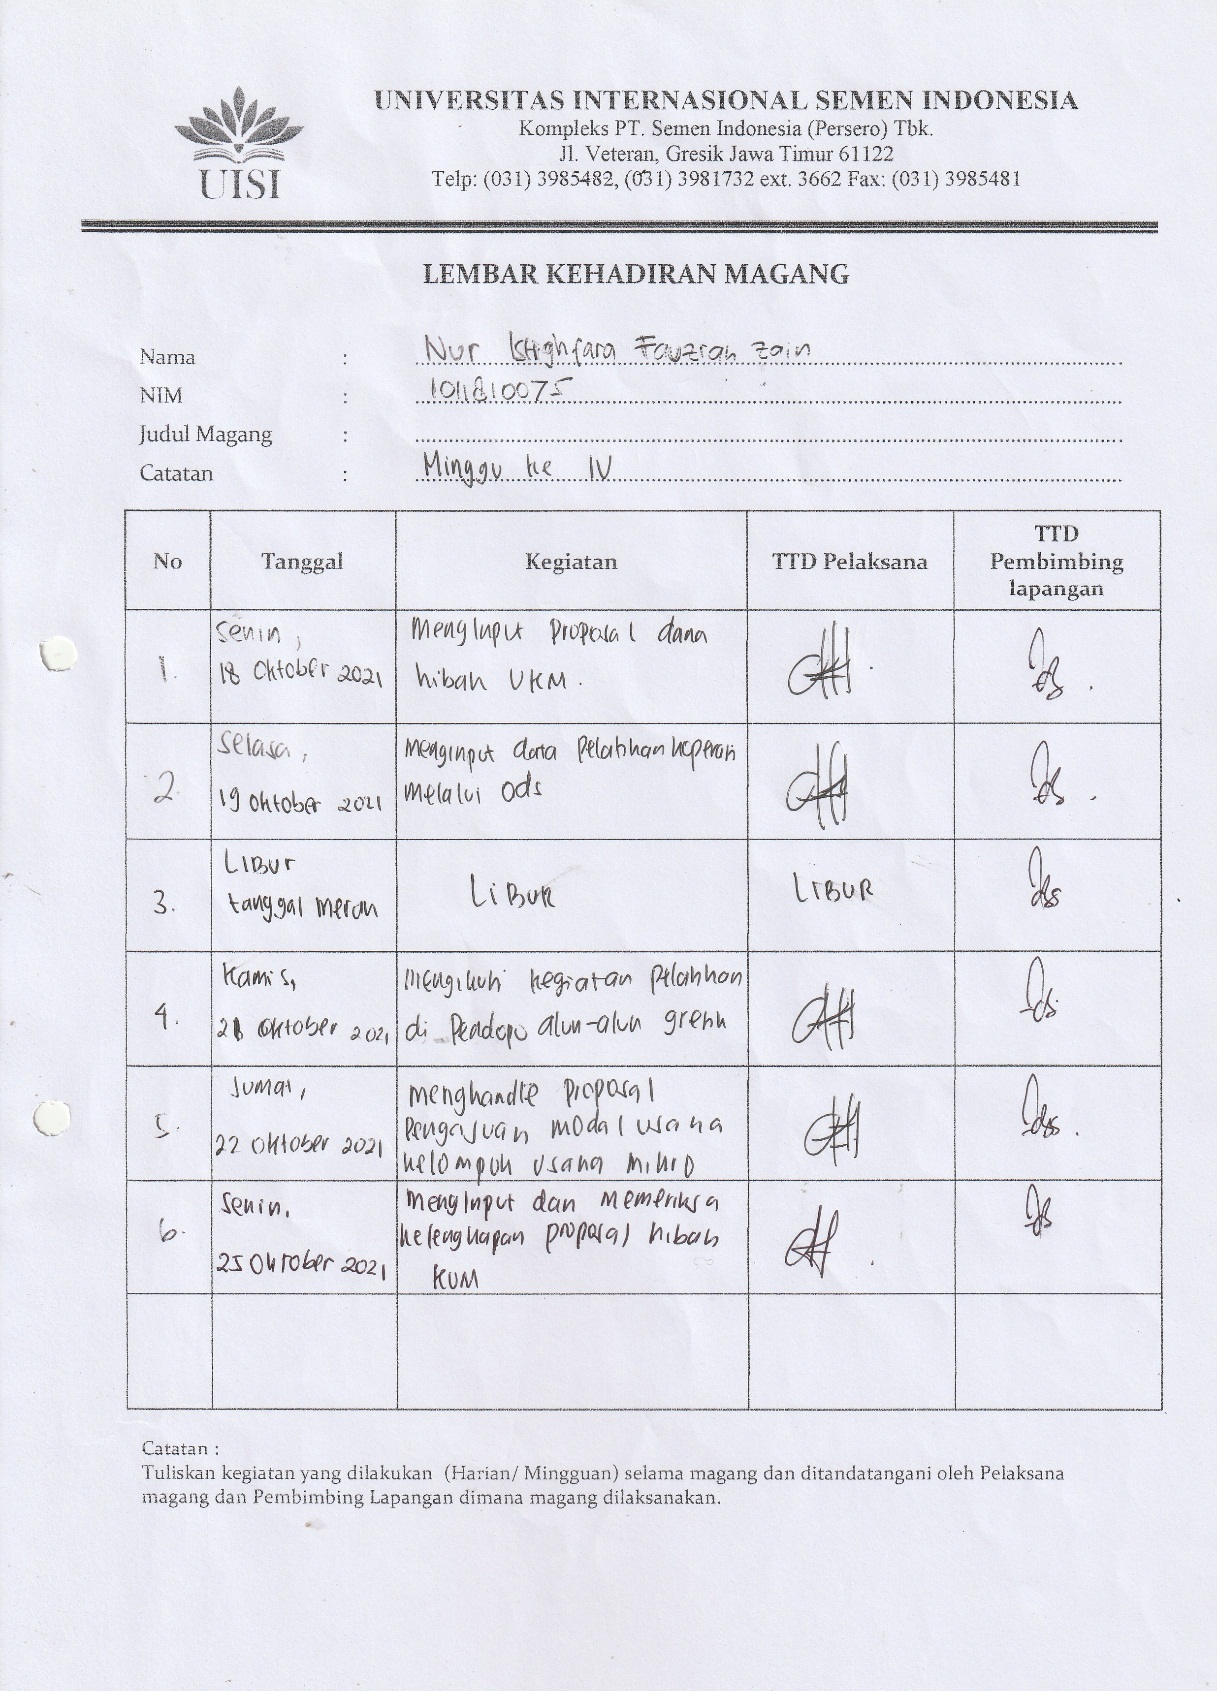 UISI
UNIVERSITAS INTERNASIONAL SEMEN INDONESIA
Kompleks PT. Semen Indonesia (Persero) Tbk.
Jl. Veteran, Gresik Jawa Timur 61122
Telp: (031) 3985482, (031) 3981732 ext. 3662 Fax: (031) 3985481
LEMBAR KEHADIRAN MAGANG
Nama : Nur Istighfara Fauziah Zain
NIM : 1011810075
Judul Magang :
Catatan : Minggu ke IV
No Tanggal Kegiatan TTD Pelaksana TTD Pembimbing lapangan
1. Senin, 18 Oktober 2021 Menginput Proposal dana
hibah UKM.
2. Selasa, 19 Oktober 2021 Menginput data Pelatihan koperasi
melalui ods
3. LIBUr tanggal merah LiBUR LIBUR
4. Kamis, 21 Oktober 2021 Mengikuti kegiatan Pelatihan
di Pendopo alun-alun gresik
5. Jumat, 22 Oktober 2021 menghandle Proposal
Pengajuan modal usaha
kelompok usaha mikro
6. Senin, 25 Oktober 2021 Menginput dan memeriksa
kelengkapan proposal hibah
KUM
Catatan :
Tuliskan kegiatan yang dilakukan (Harian/ Mingguan) selama magang dan ditandatangani oleh Pelaksana
magang dan Pembimbing Lapangan dimana magang dilaksanakan.